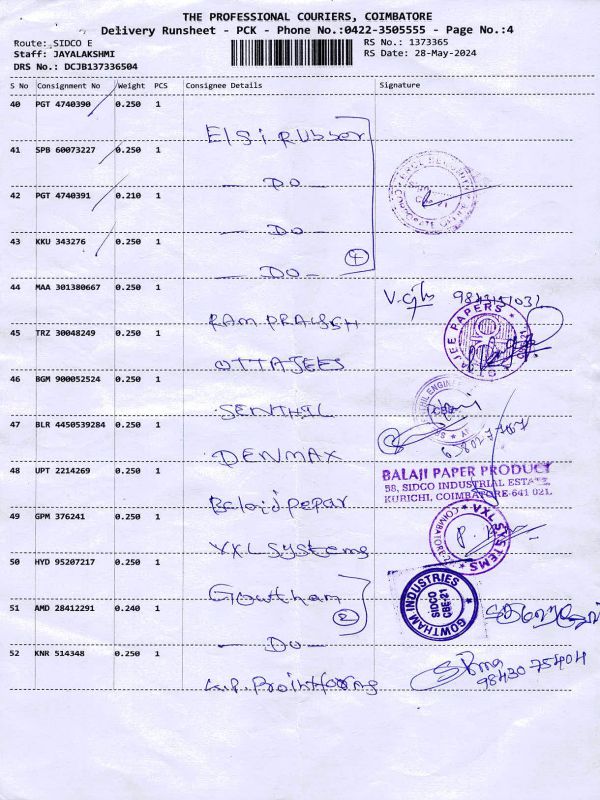 THE PROFESSIONAL COURIERS, COIMBATORE
Delivery Runsheet - PCK - Phone No.:0422-3505555 - Page No.:4
Route: SIDCO E
RS No.: 1373365
Staff: JAYALAKSHMI
RS Date: 28-May-2024
DRS No.: DCJB137336504
S No Consignment No Weight PCS Consignee Details Signature
40 PGT 4740390 0.250 1
Elsi Rubber
41 SPB 60073227 0.250 1
- DO -
42 PGT 4740391 0.210 1
- DO -
43 KKU 343276 0.250 1
- DO - 4
44 MAA 301380667 0.250 1
RAM PRAKASH
45 TRZ 30048249 0.250 1
OTTAJEES
46 BGM 900052524 0.250 1
SENTHIL
47 BLR 4450539284 0.250 1
DENMAX
48 UPT 2214269 0.250 1
BALAJI PAPER PRODUCT
58, SIDCO INDUSTRIAL ESTATE,
KURICHI, COIMBATORE-641 021.
Balaji pepar
49 GPM 376241 0.250 1
VXL SYSTEMS
VXL Systems
50 HYD 95207217 0.250 1
Gowtham 2
GOWTHAM INDUSTRIES
SIDCO
CBE-21
51 AMD 28412291 0.240 1
- DO -
52 KNR 514348 0.250 1
98430 75404